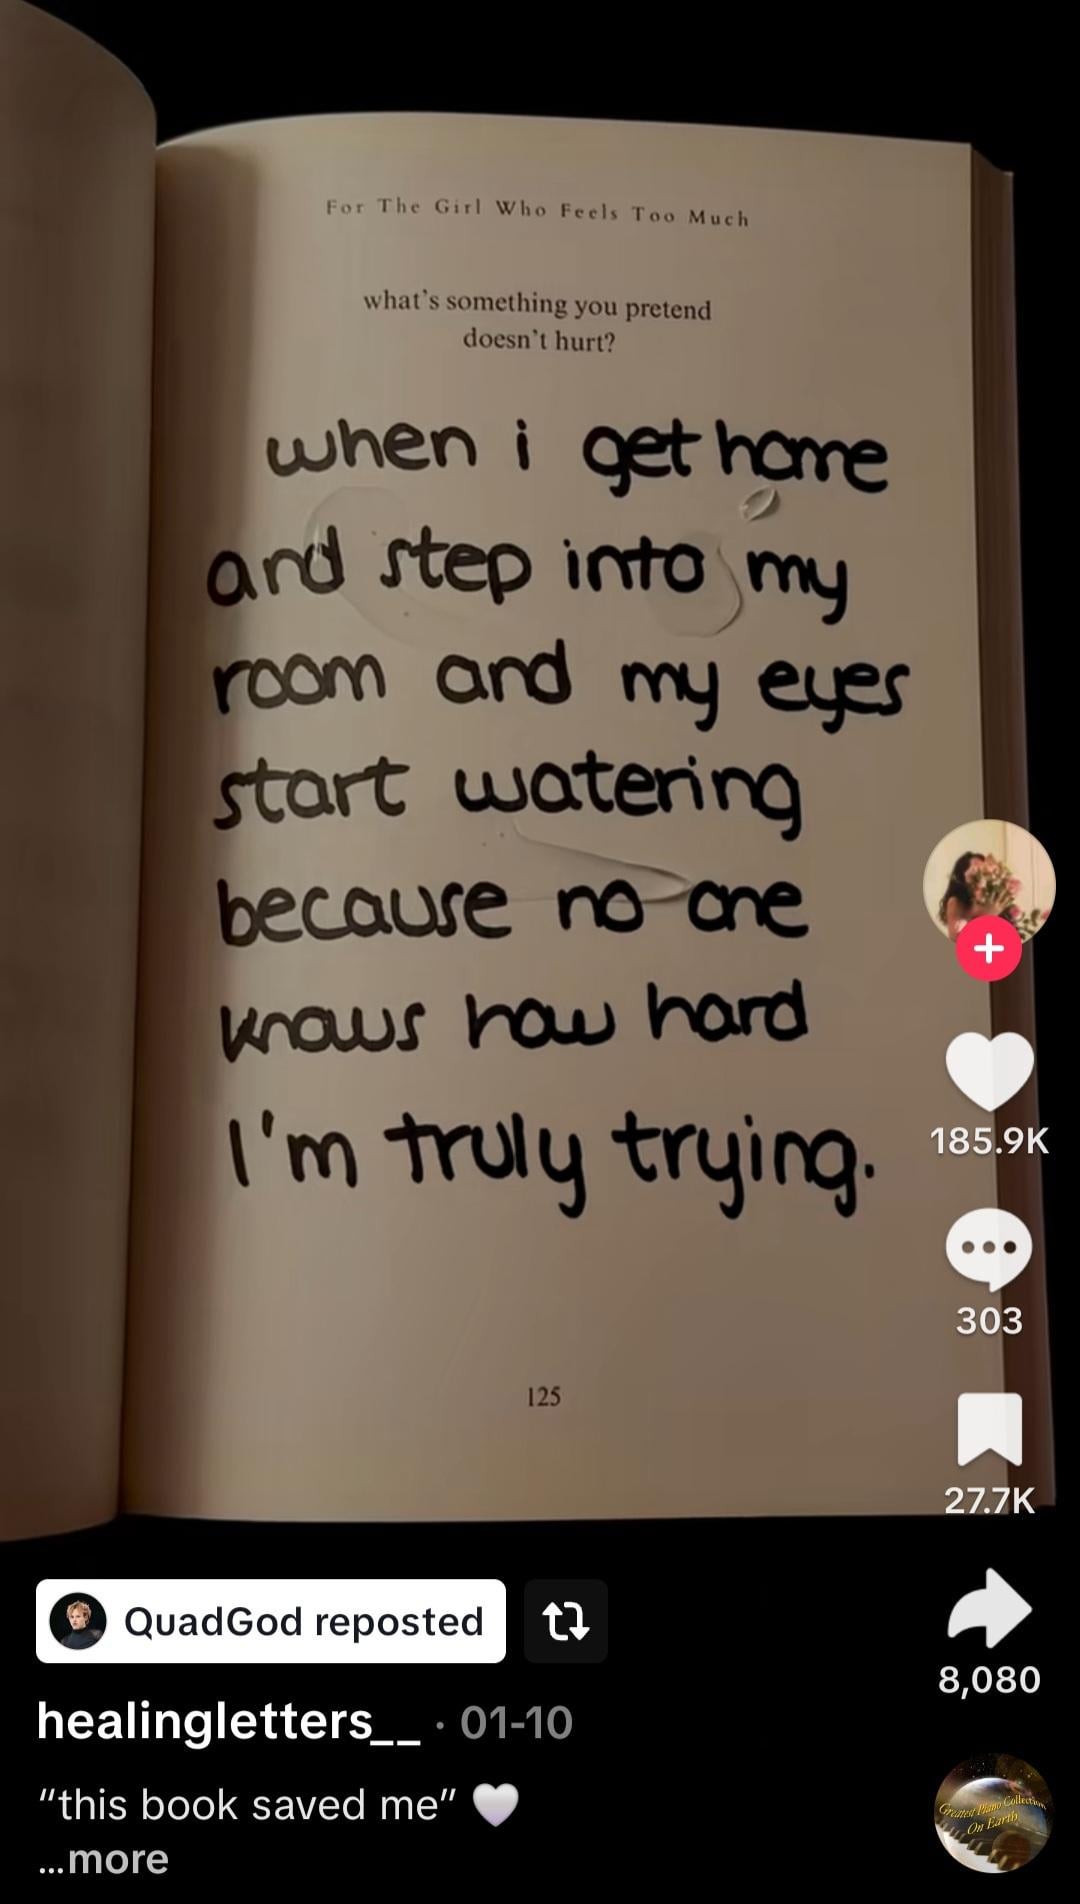 For The Girl Who Feels Too Much
what's something you pretend
doesn't hurt?
when i get home
and step into my
room and my eyes
start watering
because no one
knows how hard
I'm truly trying.
185.9K
303
125
27.7K
QuadGod reposted
8,080
healingletters__ · 01-10
"this book saved me" 🤍
...more
Greatest Piano Collection
On Earth